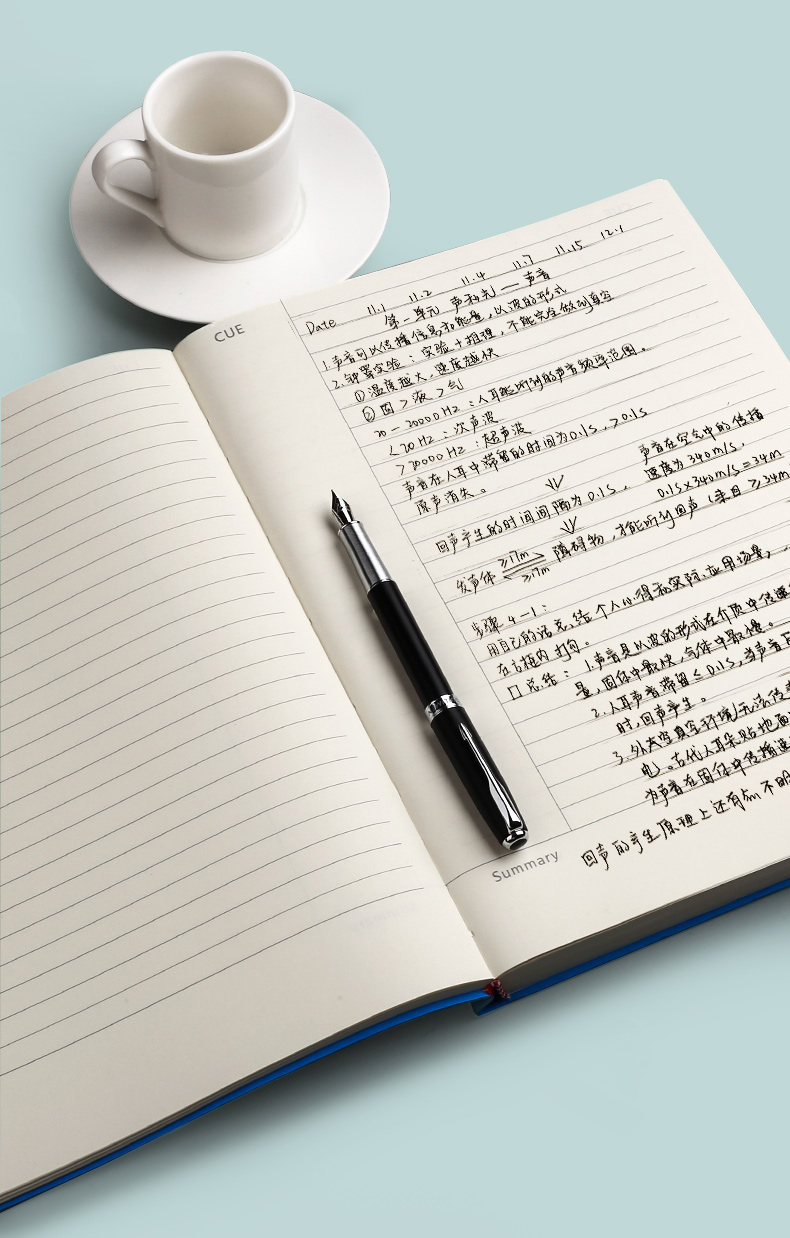 CUE
Date 11.1 11.2 11.4 11.7 11.15 12.1
第一单元 声和光 — 声音
1.声音可以传播信息和能量，以波的形式
2.钟罩实验：实验+推理，不能完全做到真空
①温度越大，速度越快
②固>液>气
20-20000Hz：人耳能听到的声音频率范围。
<20Hz：次声波
>20000Hz：超声波
声音在人耳中滞留的时间为0.1s，>0.1s
原声消失。
声音在空气中的传播
速度为340m/s，
0.1s×340m/s=34m
回声产生的时间间隔为0.1s，
发声体 ≥17m ≥17m 障碍物，才能听到回声（来自≥34m
步骤4-1：
用自己的话总结个人心得和实际应用场景，
在方框内打勾。
口总结：1.声音是以波的形式在介质中传递
量，固体中最快，气体中最慢。
2.人耳声音滞留≤0.1s，当声音
时，回声产生。
3.外太空真空环境无法传
电。古代人耳朵贴地面
为声音在固体中传播速
回声的产生原理上还有点不明
Summary